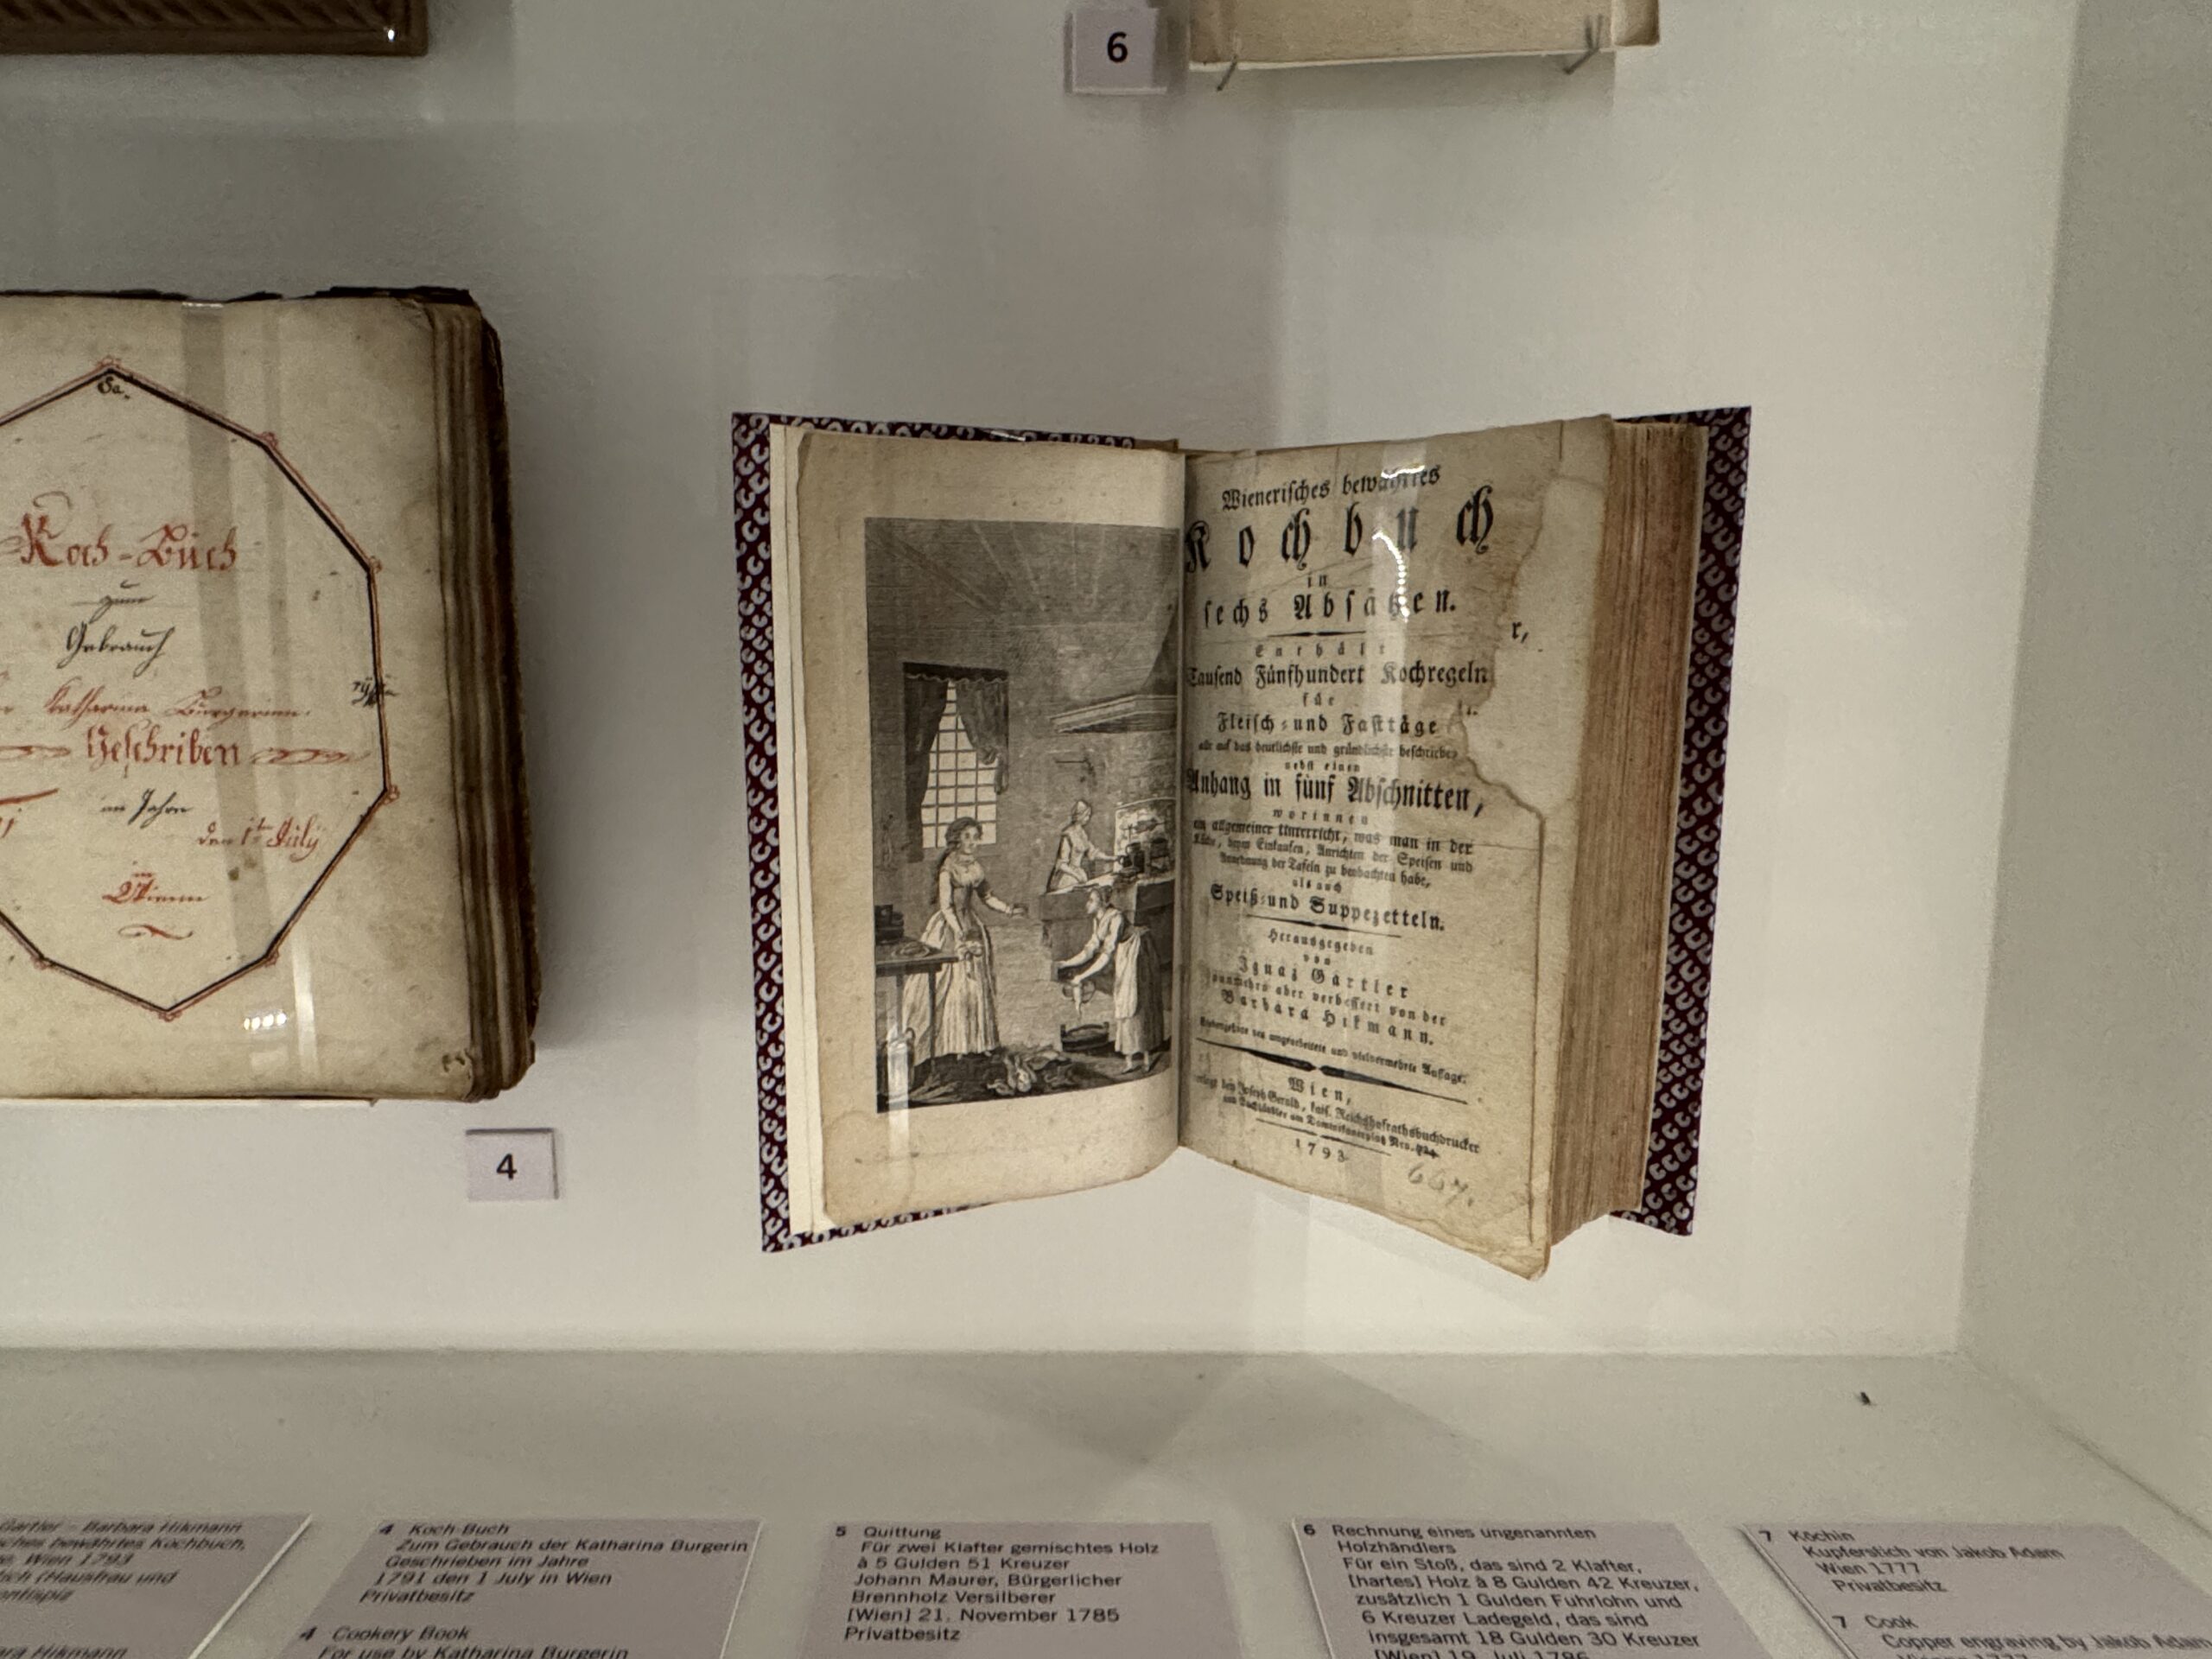 6
Sa.
Koch-Buch
zum
Gebrauch
Katharina Burgerinn.
Geschriben
im Jahre
den 1t July
in
Wienn
4
Wienerisches bewährtes
Kochbuch
in
sechs Absätzen.
Enthält
Tausend Fünfhundert Kochregeln
für
Fleisch- und Fasttäge
alle auf das deutlichste und gründlichste beschrieben
nebst einen
Anhang in fünf Abschnitten,
worinnen
ein allgemeiner Unterricht, was man in der
Küche, beym Einkaufen, Anrichten der Speisen und
Anordnung der Tafeln zu beobachten habe,
als auch
Speiß- und Suppezetteln.
Herausgegeben
von
Ignaz Gartler
nunmehro aber verbessert von der
Barbara Hikmann.
und vielvermehrte Auflage.
Wien,
verlegt bey Joseph Gerold, kais. Reichshofrathsbuchdrucker
und Buchhändler am Dominikanerplatz Nro.
1793
667.
r,
Gartler – Barbara Hikmann
sches bewährtes Kochbuch,
Wien 1793
tich (Hausfrau und
ontispiz
ara Hikmann
4 Koch-Buch
Zum Gebrauch der Katharina Burgerin
Geschrieben im Jahre
1791 den 1 July in Wien
Privatbesitz
4 Cookery Book
For use by Katharina Burgerin
5 Quittung
Für zwei Klafter gemischtes Holz
à 5 Gulden 51 Kreuzer
Johann Maurer, Bürgerlicher
Brennholz Versilberer
[Wien] 21. November 1785
Privatbesitz
6 Rechnung eines ungenannten
Holzhändlers
Für ein Stoß, das sind 2 Klafter,
[hartes] Holz à 8 Gulden 42 Kreuzer,
zusätzlich 1 Gulden Fuhrlohn und
6 Kreuzer Ladegeld, das sind
insgesamt 18 Gulden 30 Kreuzer
[Wien] 19. Juli 1786
7 Köchin
Kupferstich von Jakob Adam
Wien 1777
Privatbesitz
7 Cook
Copper engraving by Jakob Adam
Vienna 1777